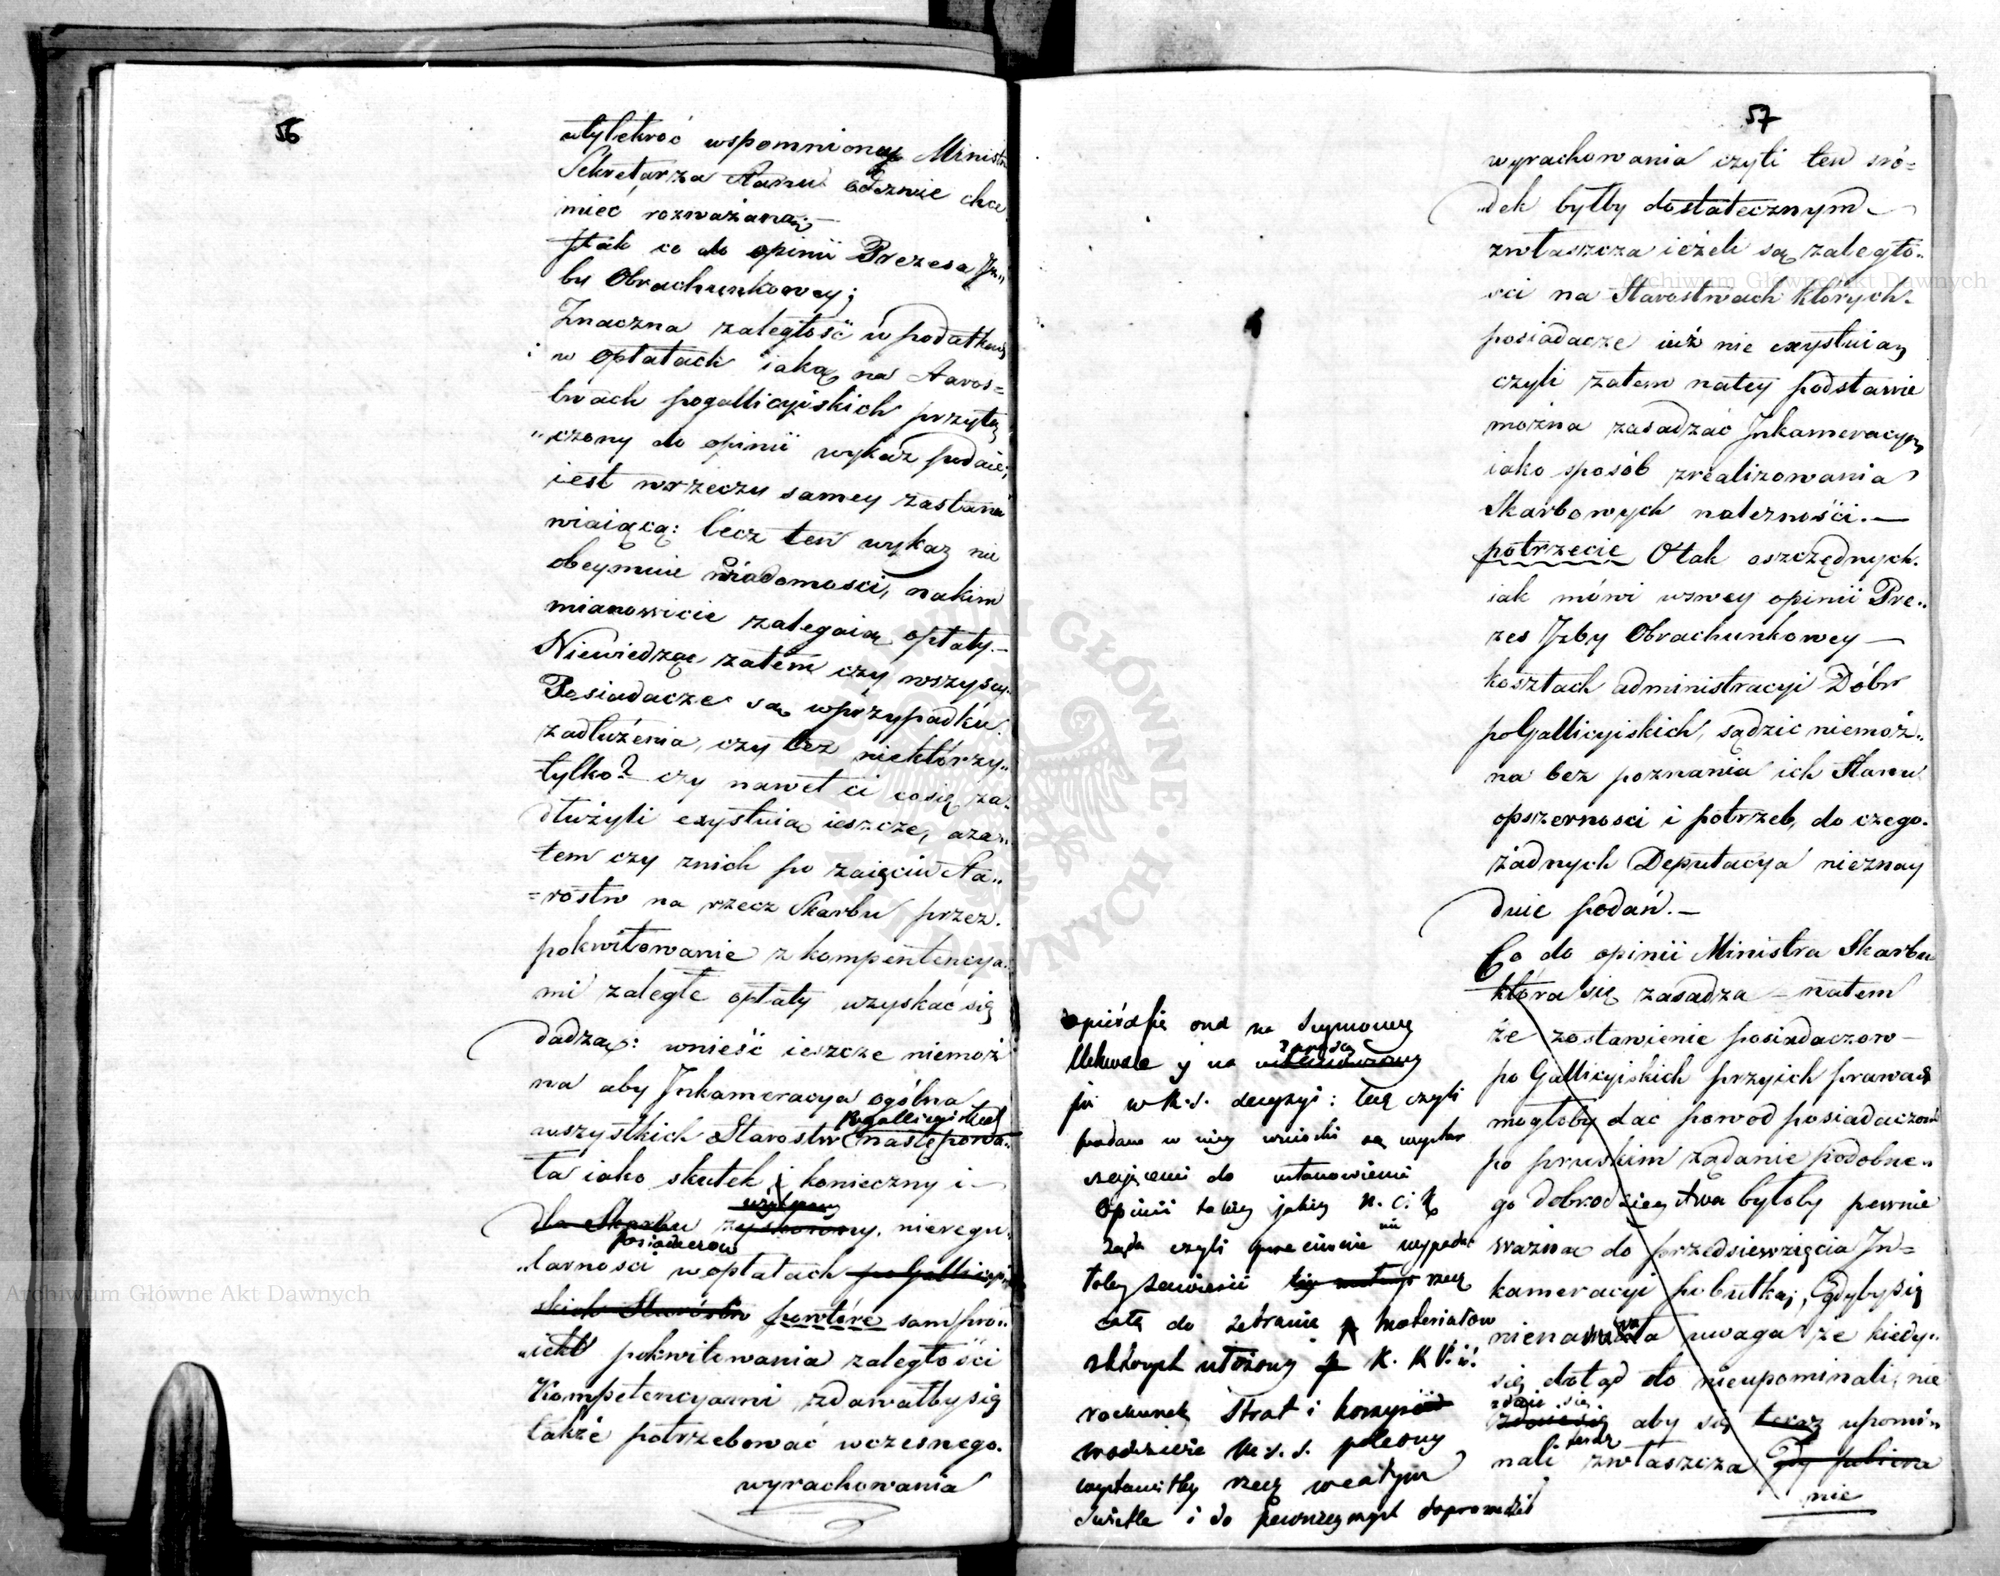 56
wtylekroć wspomnioney Minist
Sekretarza Stanu chce
mieć rozważaną:—
Jtak co do opinii Prezesa Jz„
by Obrachunkowey;
Znaczna zaległość w podatkow
i w opłatach iaką na Staros=
twach pogallicyiskich przyłą
„czony do opinii wykaz podaie,
iest wrzeczy samey zastana
wiaiącą: lecz ten wykaz nie
obeymuie wiadomości, nakim
mianowicie zalegaią opłaty.—
Niewiedząc zatem czy wszyscy
Posiadacze są wprzypadku
zadłużenia, czy też niektórzy„
tylko? czy nawet ci cosię za„
dłużyli exystuią ieszcze, aza„
tem czy znich po zaięciu Sta„
=rostw na rzecz Skarbu przez
pokwitowanie z kompentencya„
mi zaległe opłaty uzyskać się
dadzą: wnieść ieszcze niemoż
na aby Jnkameracya ogólna
pogallicyiskich
wszystkich Starostw następowa„
ła iako skutek konieczny i
dla Skarbu zyskowny, nieregu„
posiadaczow
„larności wopłatach po Gallicyi
skich Starostw powtóre sam pro„
„iekt pokwitowania zaległości
Kompetencyami zdawałby się
także potrzebować wczesnego
wyrachowania
57
wyrachowania czyli ten śro=
„dek byłby dostatecznym—
zwłaszcza ieżeli są zaległo„
ści na Starostwach których
posiadacze iuż nie exystuią
czyli zatem natey podstawie
można zasadzać Jnkameracyą
iako sposób zrealizowania
Skarbowych należności.—
potrzecie O tak oszczędnych
iak mówi wswey opinii Pre„
zes Jzby Obrachunkowey—
kosztach administracyi Dóbr
poGallicyiskich, sądzić niemoż„
na bez poznania ich Stanu
opszerności i potrzeb, do czego
żadnych Deputacya nieznay
duie podań.—
Co do opinii Ministra Skarbu
która się zasadza — natem
że zostawienie posiadaczow—
po Gallicyiskich przyich prawach
mogłoby dać powod posiadaczom
po pruskim żądanie podobne„
go dobrodzieystwa byłoby pewnie
ważną do przedsiewzięcia Jn=
kameracyi pobutką, gdyby się
nienasuwała uwaga że kiedy„
się dotąd do nieupominali, nie
zdaje się
aby się teraz upomi„
teraz
nali zwłaszcza gdy
nie
opiera się ona na Seymowey
Uchwale y na
w K.S. decyzyi: lecz czyli
podane w niey wnioski są wystar
czającemi do ustanowienia
Opinii takiey jakiey N.C.K
żąda czyli przeciwnie nie wypada
łoby zawiesić rzecz
całą do zebrania materiałow
z których ułożony
rachunek Strat i korzyści
polecony
wystawiłby rzecz wcałym
świetle i do pewnieyszych doprowadził